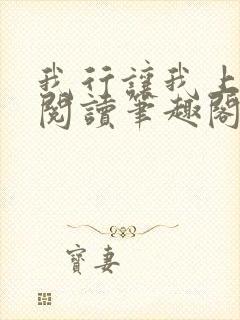 我行讓我上
閱讀筆趣閣
寶妻